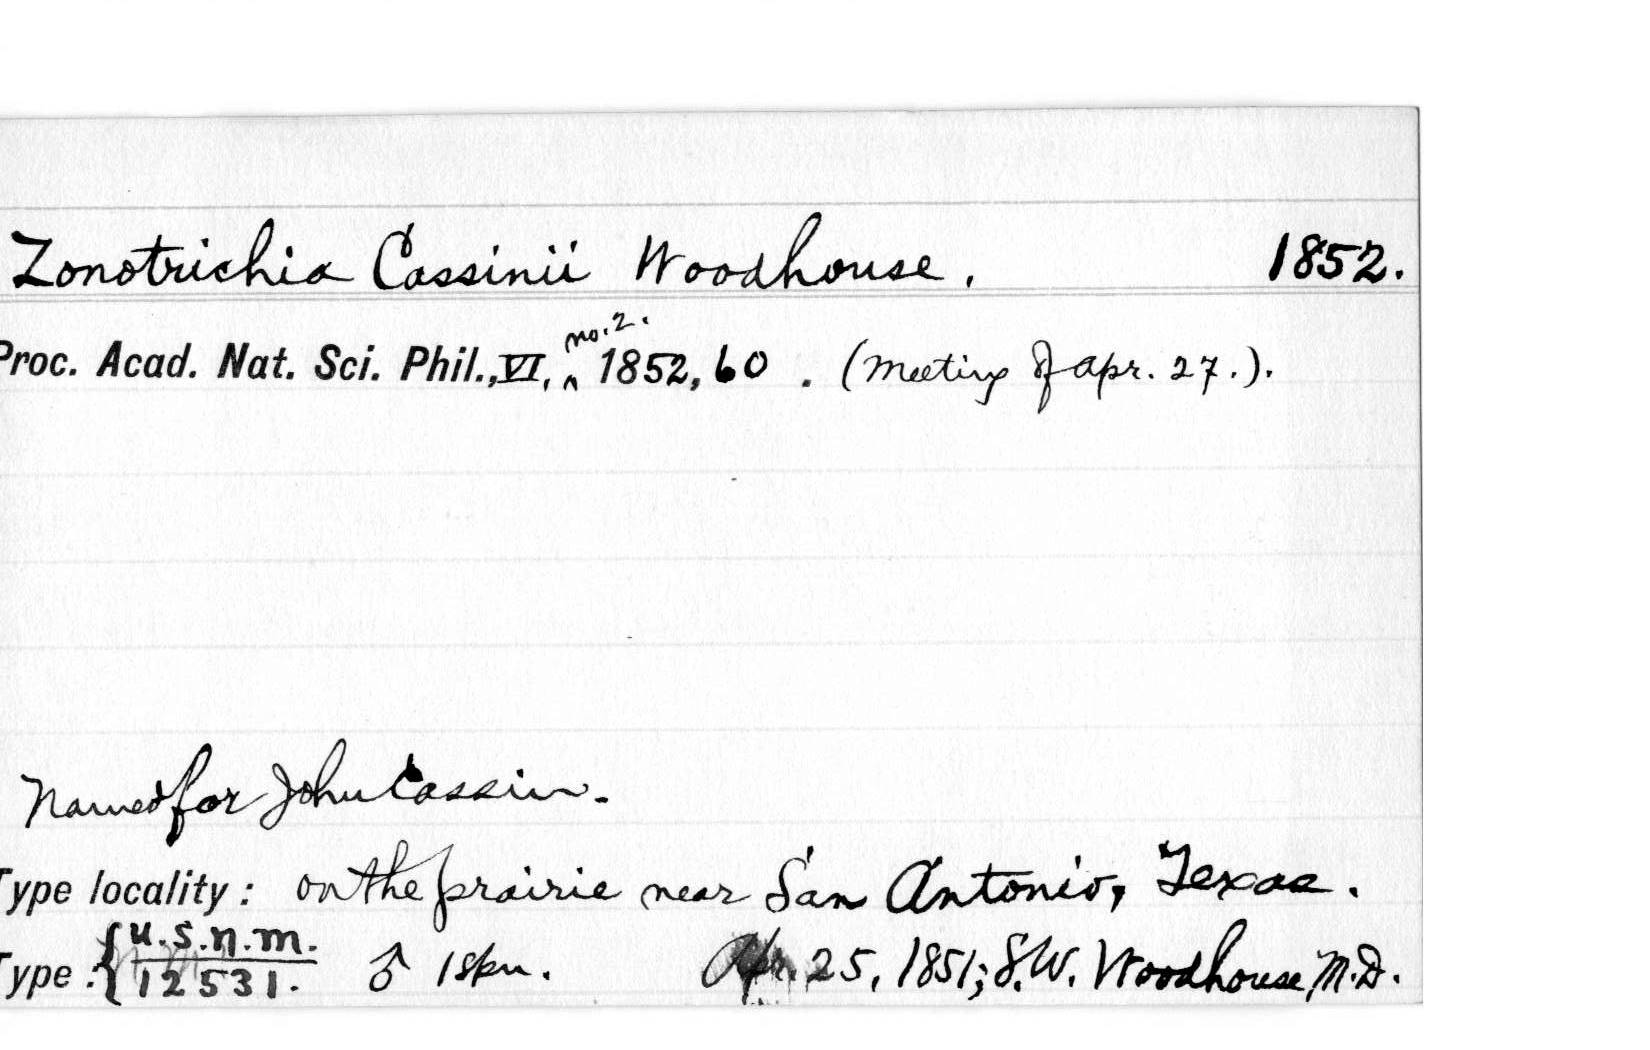 Zonotrichia Cassinii Woodhouse. 1852.
Proc. Acad. Nat. Sci. Phil., VI, ^ no. 2. 1852, 60 . (Meeting of Apr. 27.).
Named for John Cassin.
Type locality: on the prairie near San Antonio, Texas.
Type: { U.S.N.M. 12531. ♂ 1 skn. Apr. 25, 1851; S.W. Woodhouse, M.D.